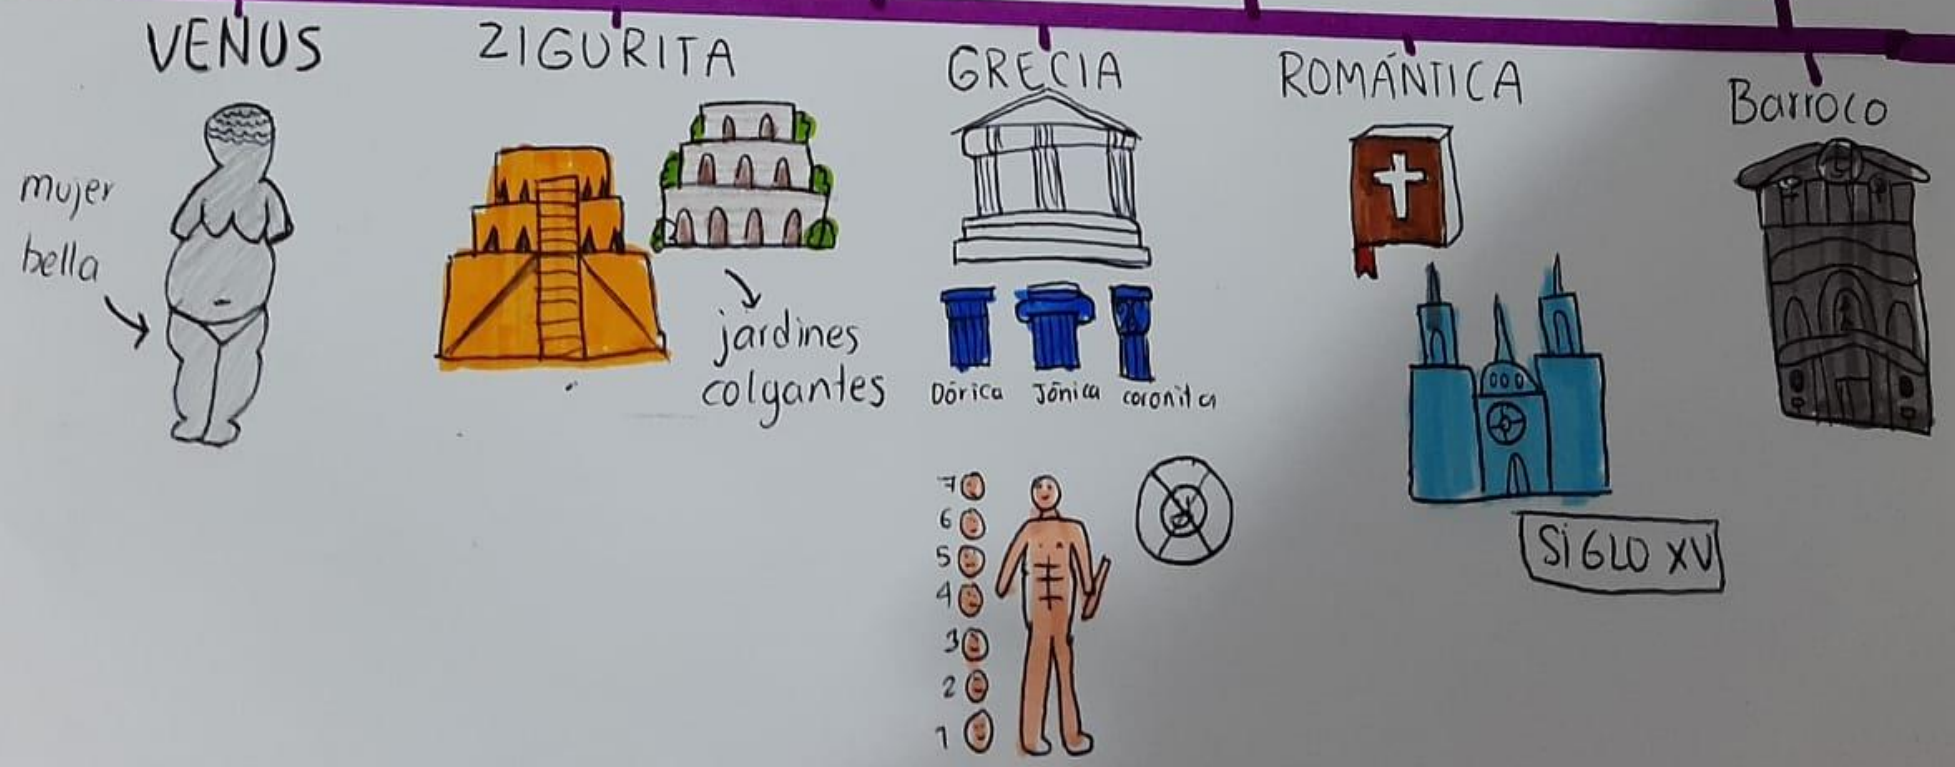 VENUS
mujer
bella
ZIGURITA
jardines
colgantes
GRECIA
Dórica Jónica coronita
7
6
5
4
3
2
1
ROMÁNTICA
SIGLO XV
Barroco